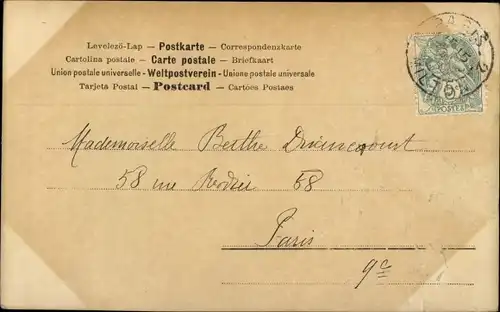 Levelező-Lap — Postkarte — Correspondenzkarte
Cartolina postale — Carte postale — Briefkaart
Union postale universelle - Weltpostverein - Unione postale universale
Tarjeta Postal — Postcard — Cartões Postaes
PARIS
POSTES
Mademoiselle Berthe
58 rue Rodier 58
Paris
9e